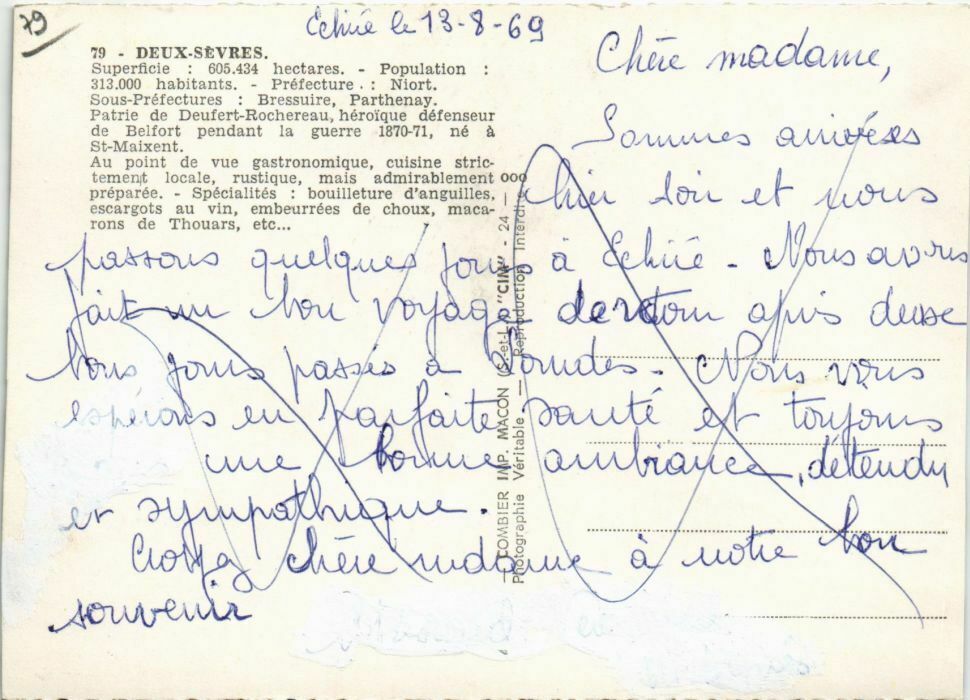 79
Echiré le 13-8-69
79 - DEUX-SÈVRES.
Superficie : 605.434 hectares. - Population :
313.000 habitants. - Préfecture : Niort.
Sous-Préfectures : Bressuire, Parthenay.
Patrie de Deufert-Rochereau, héroïque défenseur
de Belfort pendant la guerre 1870-71, né à
St-Maixent.
Au point de vue gastronomique, cuisine stric-
tement locale, rustique, mais admirablement
préparée. - Spécialités : bouilleture d'anguilles,
escargots au vin, embeurrées de choux, maca-
rons de Thouars, etc...
Chère madame,
Sommes arrivées
hier soir et nous
passons quelques jours à Echiré - Nous avons
fait un bon voyage de retour après deux
bons jours passés à - Nous vous
espérons en parfaite santé et toujours
une bonne ambiance, détendu
et sympathique.
Croyez chère madame à notre bon
souvenir
COMBIER IMP. MACON (S.-et-L.) "CIM" - 24 - ooo
Photographie Véritable - Reproduction Interdite